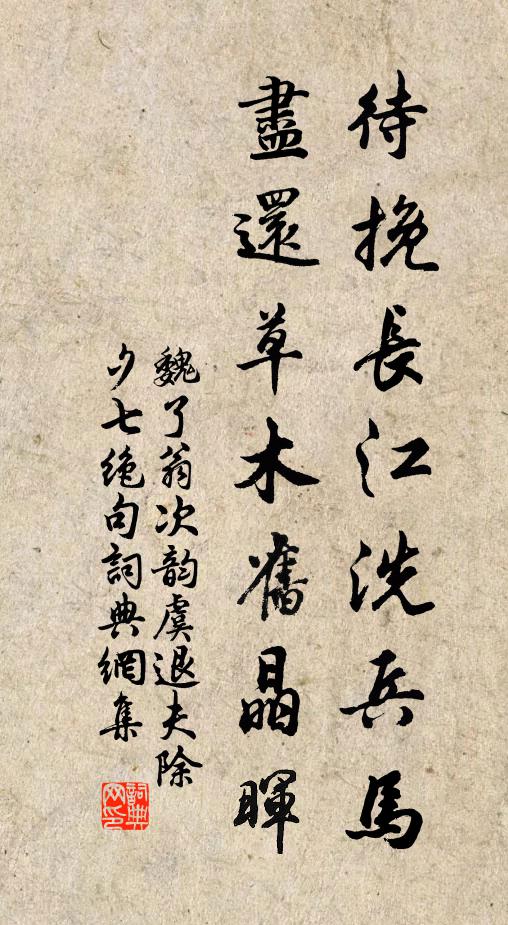 待挽長江洗兵馬
盡還草木舊晶暉
魏了翁次韵虞退夫除
夕七絶句詞典網集
詞典网印